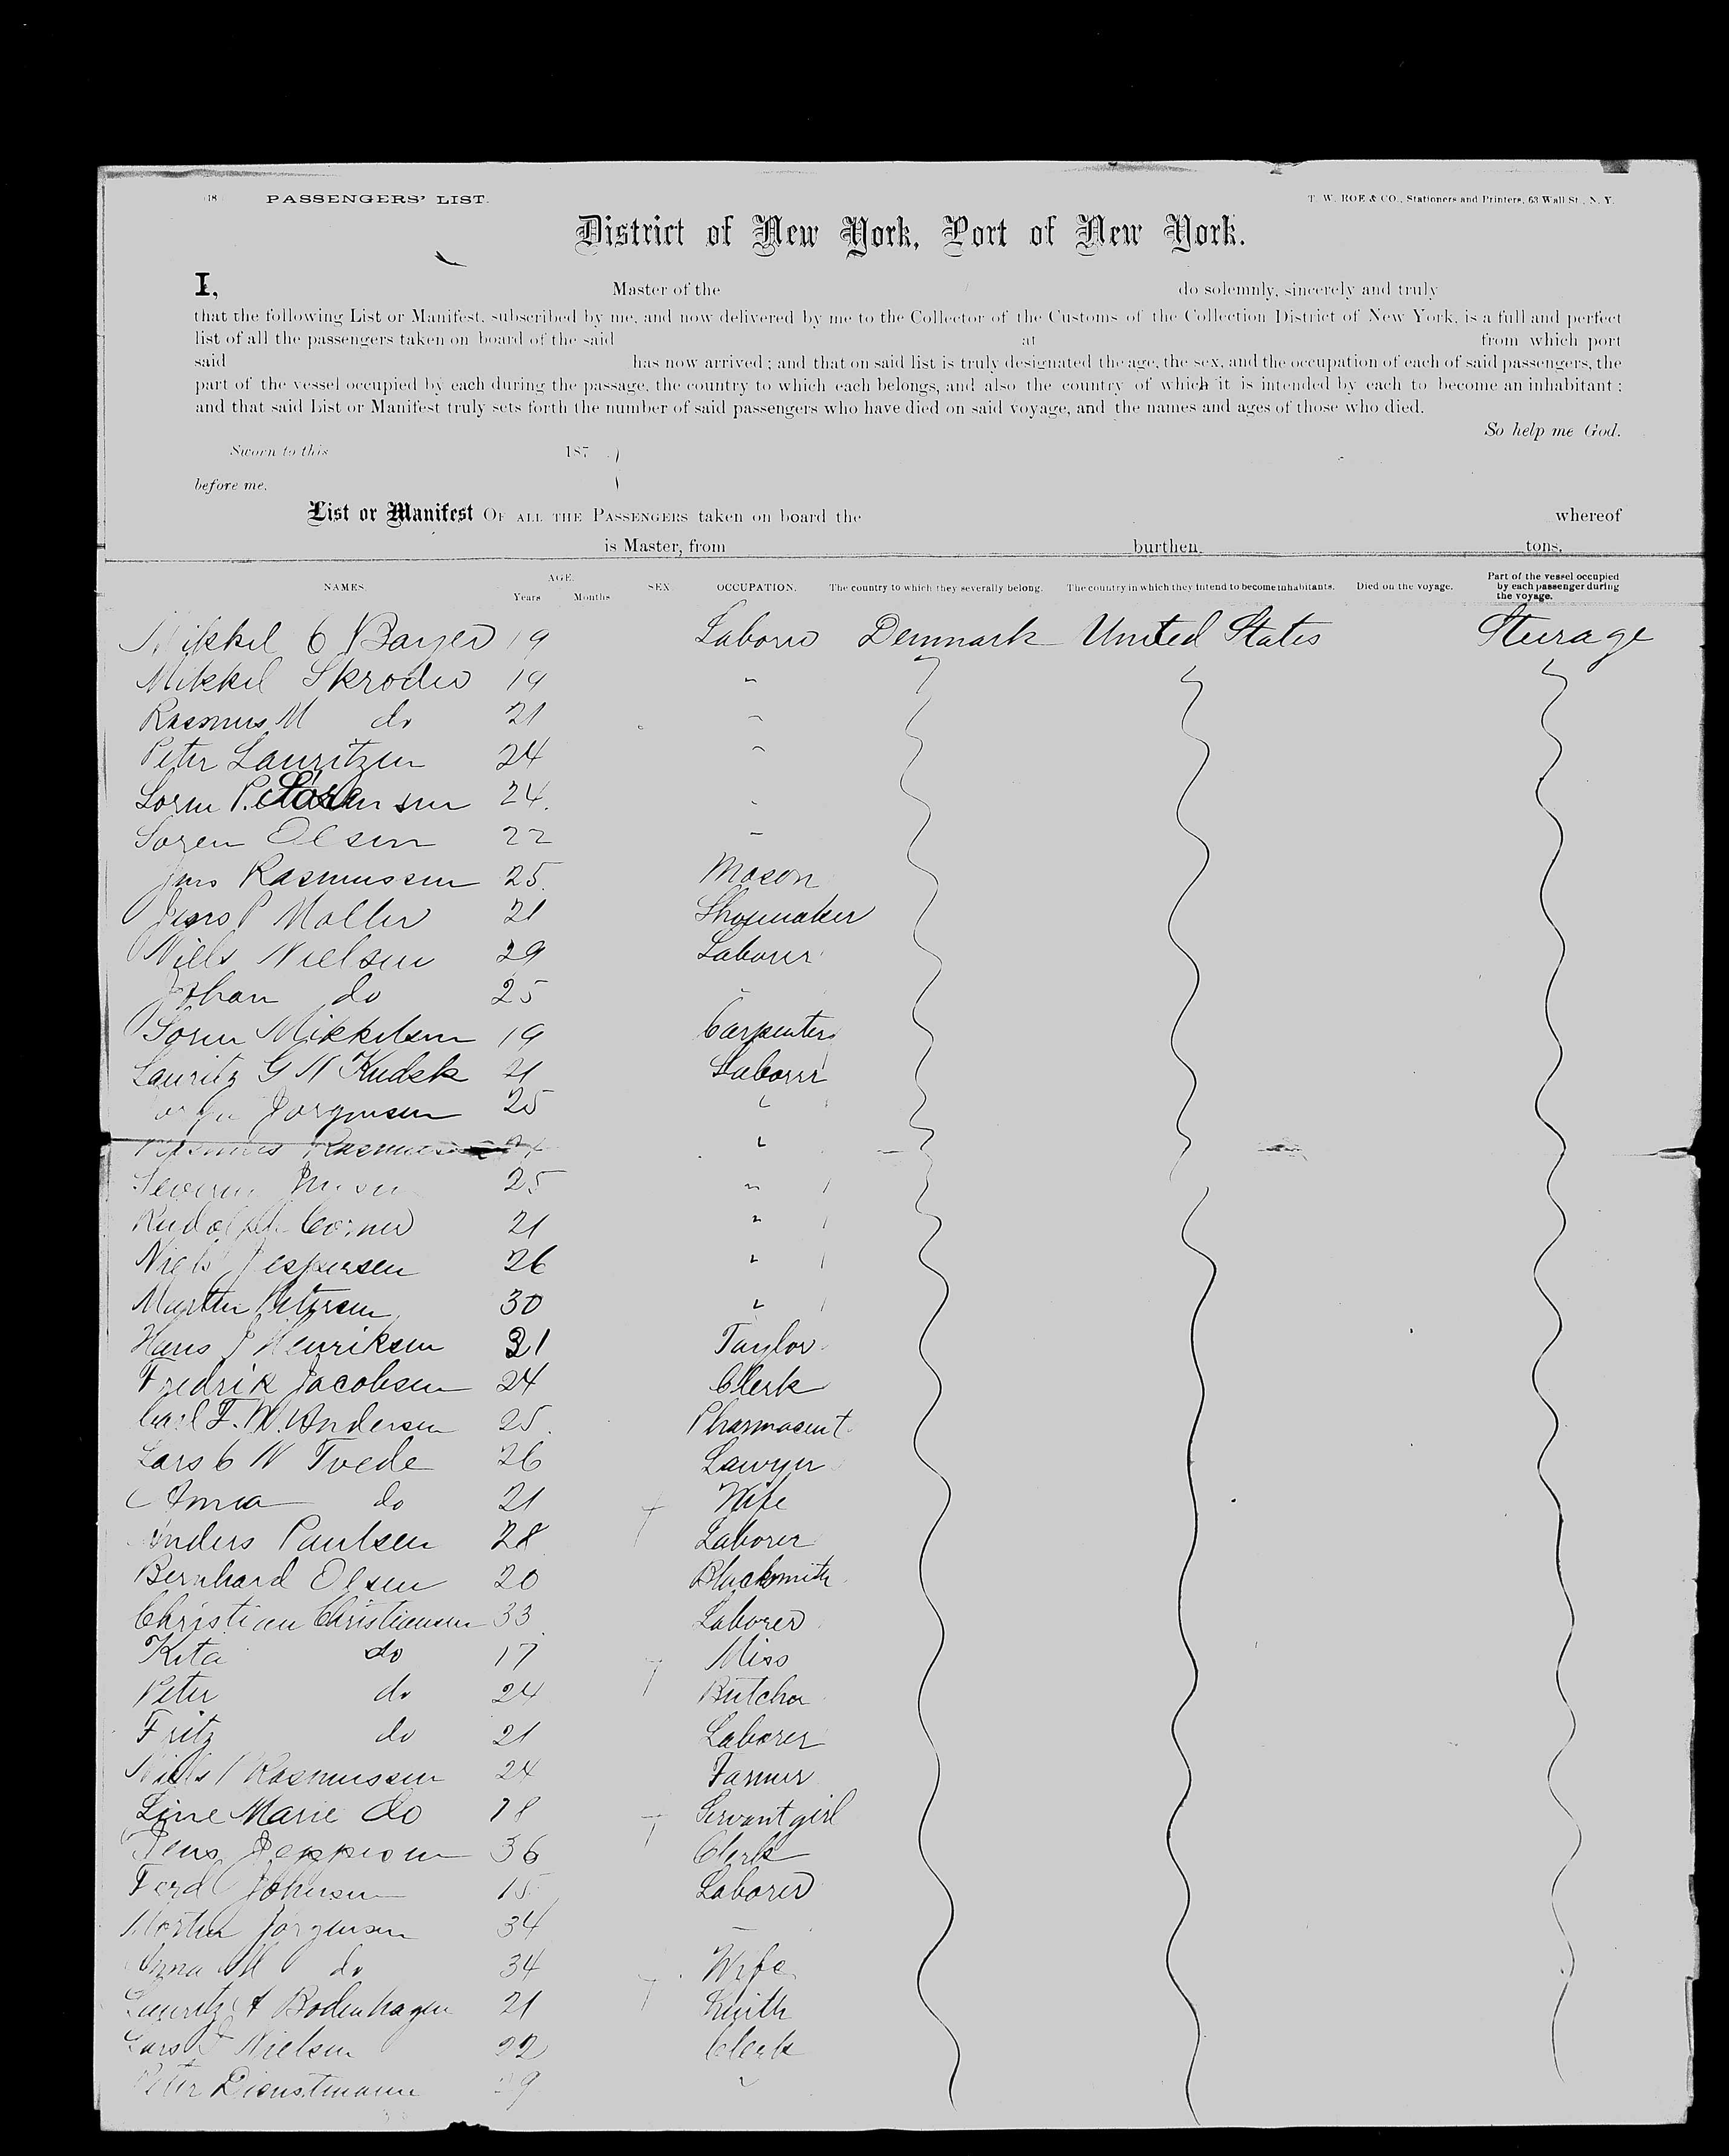 18 PASSENGERS' LIST. T. W. ROE & CO., Stationers and Printers, 63 Wall St., N. Y.
District of New York, Port of New York.
I, Master of the do solemnly, sincerely and truly
that the following List or Manifest, subscribed by me, and now delivered by me to the Collector of the Customs of the Collection District of New York, is a full and perfect
list of all the passengers taken on board of the said at from which port
said has now arrived; and that on said list is truly designated the age, the sex, and the occupation of each of said passengers, the
part of the vessel occupied by each during the passage, the country to which each belongs, and also the country of which it is intended by each to become an inhabitant;
and that said List or Manifest truly sets forth the number of said passengers who have died on said voyage, and the names and ages of those who died.
So help me God.
Sworn to this 187
before me.
List or Manifest OF ALL THE PASSENGERS taken on board the whereof
is Master, from burthen, tons.
NAMES. AGE. Years Months SEX. OCCUPATION. The country to which they severally belong. The country in which they intend to become inhabitants. Died on the voyage. Part of the vessel occupied by each passenger during the voyage.
Mikkel C Bayer 19 Laborer Denmark United States Steerage
Mikkel Skroder 19 "
Rasmus M do 21 "
Peter Lauritzen 24 "
Soren P. 24. "
Soren Olsen 22 "
Jens Rasmussen 25. Mason
Jens P Moller 21 Shoemaker
Niels Nielsen 29 Laborer
Johan do 25 "
Soren Mikkelsen 19 Carpenter
Lauritz G N 21 Laborer
Jorgensen 25 "
Rasmus Rasmussen "
Severin 25 "
Rudolph Corner 21 "
Niels Jespersen 26 "
Martin Petersen 30 "
Hans J Henriksen 31 Taylor
Fredrik Jacobsen 24 Clerk
Carl F. W. Andersen 25. Pharmaceut
Lars C N Tvede 26 Lawyer
Anna do 21 Wife
Anders Paulsen 28 Laborer
Bernhard Olsen 20 Blacksmith
Christian Christiansen 33 Laborer
Kita do 17 Miss
Peter do 24 Butcher
Fritz do 21 Laborer
Niels P Rasmussen 24 Farmer
Line Marie do 18 Servant girl
Jens Jeppesen 36 Clerk
Ferd Johnsen 15 Laborer
Morten Jorgensen 34 "
Anna M do 34 Wife
Lauritz A Bodenhagen 21 Smith
Lars Nielsen 22 Clerk
Peter Dienstmann "